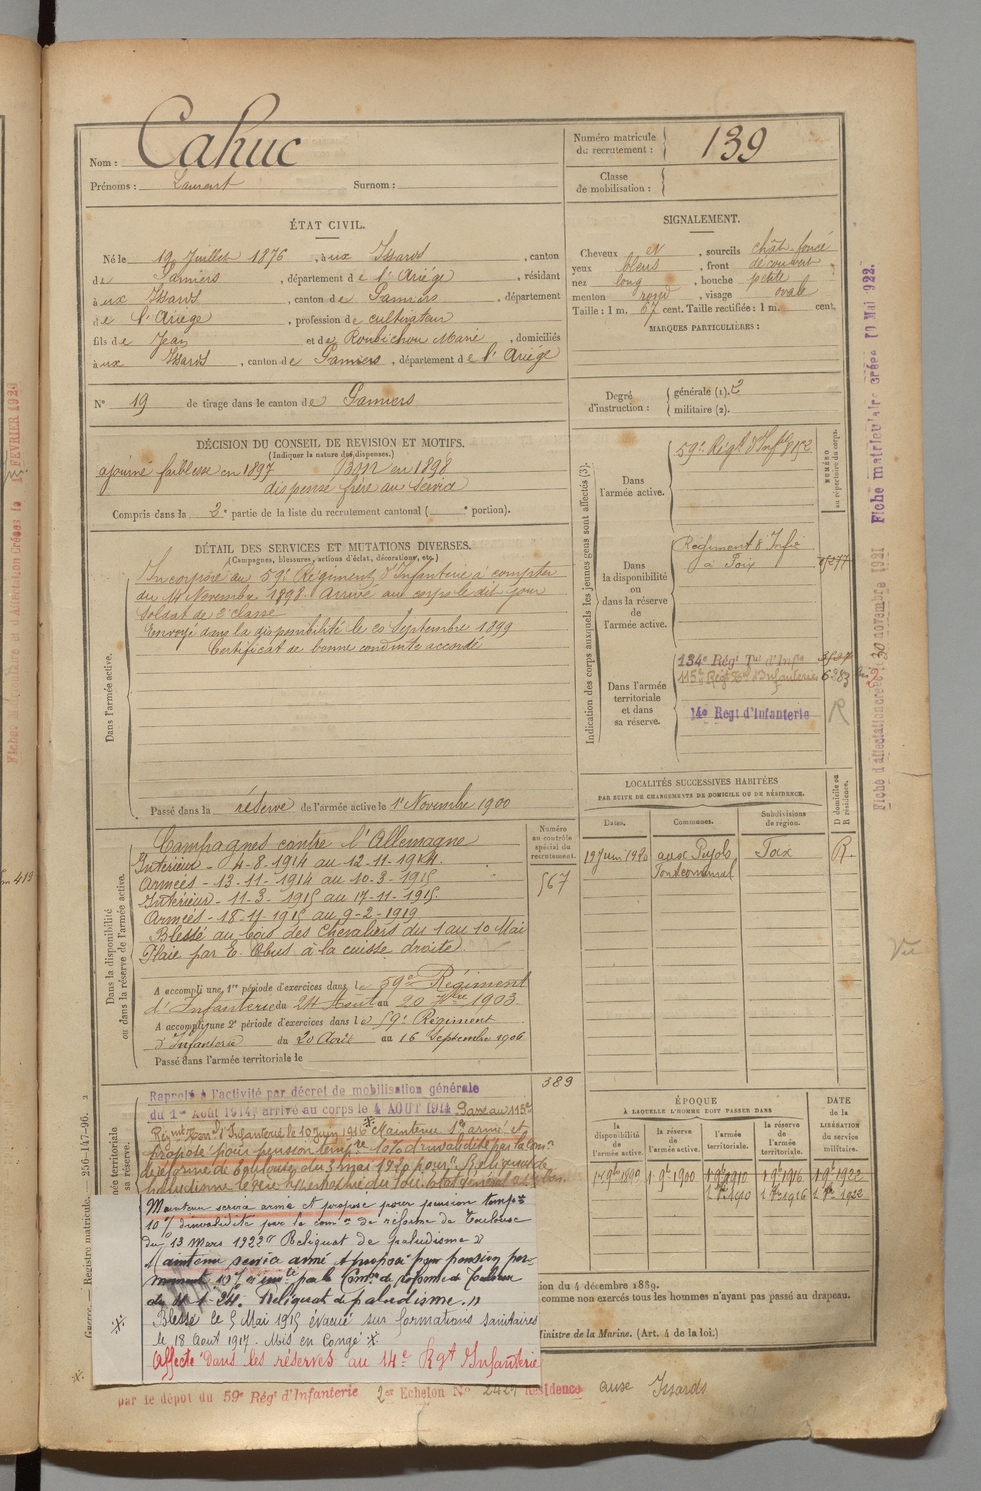 Nom : Cahuc
Prénoms : Laurent Surnom :
Numéro matricule de recrutement : 139
Classe de mobilisation :
ÉTAT CIVIL.
Né le 19 Juillet 1876, à ux Issards, canton
de Pamiers, département de l'Ariège, résidant
à ux Issards, canton de Pamiers, département
de l'Ariège, profession de cultivateur
fils de Jean et de Roubichou Marie, domiciliés
à ux Issards, canton de Pamiers, département de l'Ariège
N° 19 de tirage dans le canton de Pamiers
SIGNALEMENT.
Cheveux et, sourcils chât. foncé
yeux bleus, front découvert
nez long, bouche petite
menton rond, visage ovale
Taille : 1 m. 67 cent. Taille rectifiée : 1 m. cent.
MARQUES PARTICULIÈRES :
Degré d'instruction : générale (1). 2
militaire (2).
DÉCISION DU CONSEIL DE REVISION ET MOTIFS.
(Indiquer la nature des dispenses.)
ajourné faiblesse en 1897 Bon en 1898
dispensé frère au service
Compris dans la 2e partie de la liste du recrutement cantonal ( e portion).
DÉTAIL DES SERVICES ET MUTATIONS DIVERSES.
(Campagnes, blessures, actions d'éclat, décorations, etc.)
Dans l'armée active.
Incorporé au 59e Régiment d'Infanterie à compter
du 14 Novembre 1898. Arrivé au corps le dit jour
soldat de 2e classe
Envoyé dans la disponibilité le 20 Septembre 1899
Certificat de bonne conduite accordé
Passé dans la réserve de l'armée active le 1er Novembre 1900
Indication des corps auxquels les jeunes gens sont affectés (3).
NUMÉRO au répertoire du corps.
Dans l'armée active.
59e Régt d'Infie
Dans la disponibilité ou dans la réserve de l'armée active.
Régiment d'Infie
à Foix
Dans l'armée territoriale et dans sa réserve.
134e Régt Tal d'Infie
115e Régt Tal d'Infanterie
14e Regt d'Infanterie
R
LOCALITÉS SUCCESSIVES HABITÉES
PAR SUITE DE CHANGEMENTS DE DOMICILE OU DE RÉSIDENCE.
Dates. Communes. Subdivisions de région. D domicile ou R résidence.
19 Juin 1920 aux Pujols Foix R
Dans la disponibilité ou dans la réserve de l'armée active.
Numéro au contrôle spécial du recrutement.
567
Campagnes contre l'Allemagne
Intérieur - 4-8-1914 au 12-11-1914.
Armées - 13-11-1914 au 10-3-1915
Intérieur - 11-3-1915 au 17-11-1915.
Armées - 18-11-1915 au 9-2-1919
Blessé au bois des Chevaliers du 1 au 10 Mai
Plaie par E. Obus à la cuisse droite.
A accompli une 1re période d'exercices dans le 59e Régiment
d'Infanterie du 24 Aout au 20 7bre 1903.
A accompli une 2e période d'exercices dans le 59e Régiment
d'Infanterie du 20 Août au 16 Septembre 1906
Passé dans l'armée territoriale le
389
Rappelé à l'activité par décret de mobilisation générale
du 1er Août 1914, arrivé au corps le 4 AOUT 1914 Passé au 115e
Régiment Terr. d'Infanterie le 10 Juin 1916 Maintenu sce armé et
proposé pour pension tempre 10% d'invalidité par la Comon
de réforme de Toulouse du 3 mai 1920 pour : Reliquat de
paludisme
Maintenu service armé et proposé pour pension tempre
10% d'invalidité par la comon de réforme de Toulouse
du 13 Mars 1922 "Reliquat de paludisme"
Maintenu service armé et proposé pour pension per-
manente 10% d'invté par la Comon de réforme de Toulouse
du 11-1-24. "Reliquat de paludisme."
Blessé le 5 Mai 1915 évacué sur formations sanitaires
le 18 Aout 1917. Mis en Congé
Affecté dans les réserves au 14e Rgt d'Infanterie
par le dépôt du 59e Régt d'Infanterie 2e Echelon N° 2429 Résidence aux Issards
ÉPOQUE
À LAQUELLE L'HOMME DOIT PASSER DANS
DATE de la LIBÉRATION du service militaire.
la disponibilité de l'armée active. la réserve de l'armée active. l'armée territoriale. la réserve de l'armée territoriale.
1 9bre 1899 1 9bre 1900 1 9bre 1910 1 9bre 1916 1 9bre 1922
ion du 4 décembre 1889.
comme non exercés tous les hommes n'ayant pas passé au drapeau.
Ministre de la Marine. (Art. 4 de la loi.)
Guerre. — Registre matricule. — 256-147-96.
Fiche d'affectation créée le 30 novembre 1921 Fiche matriculaire créée 10 Mai 1922.
Vu